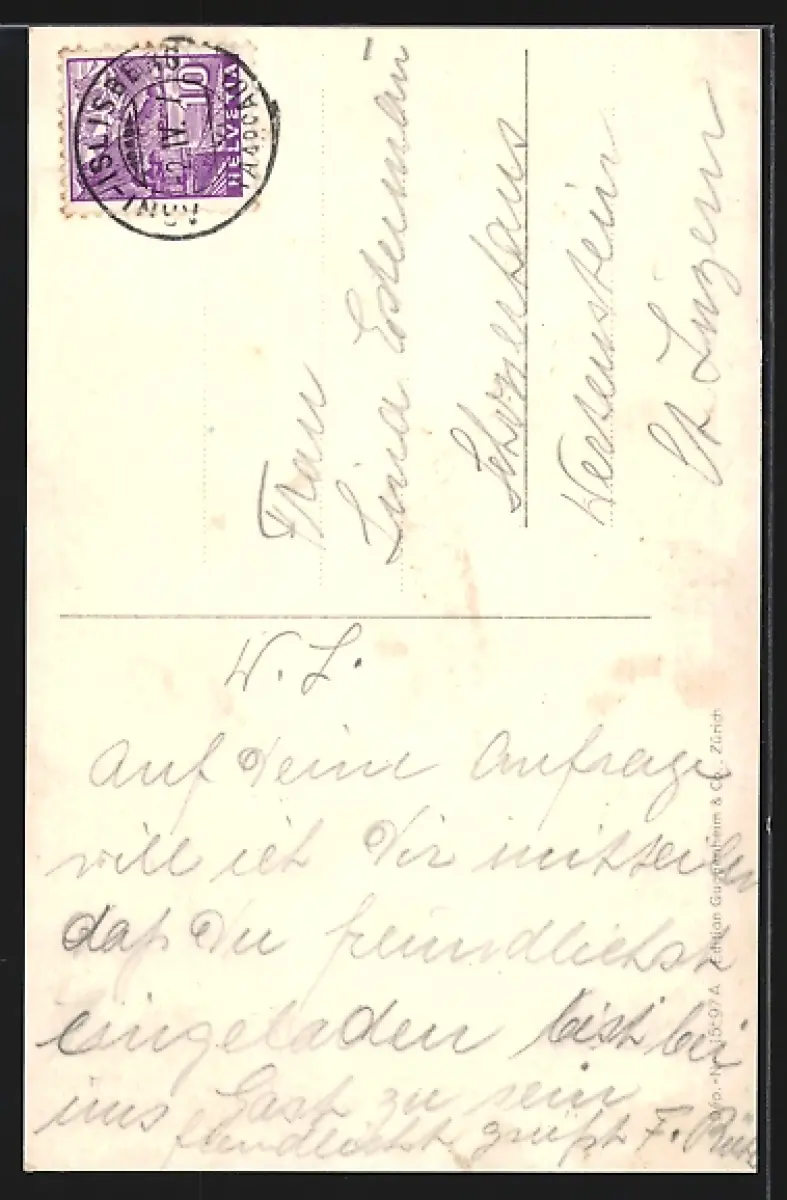 10
HELVETIA
ARNI-ISLISBERG
(AARGAU)
IV.
Frau
Lina Estermann
Schonerhaus
Wertenstein
Kt. Luzern
W. L.
Auf Deine Anfrage
will ich Dir mitteilen
daß Du freundlichst
eingeladen bist bei
uns Gast zu sein
freundlichst grüßt F.
Edition Guggenheim & Co., Zürich